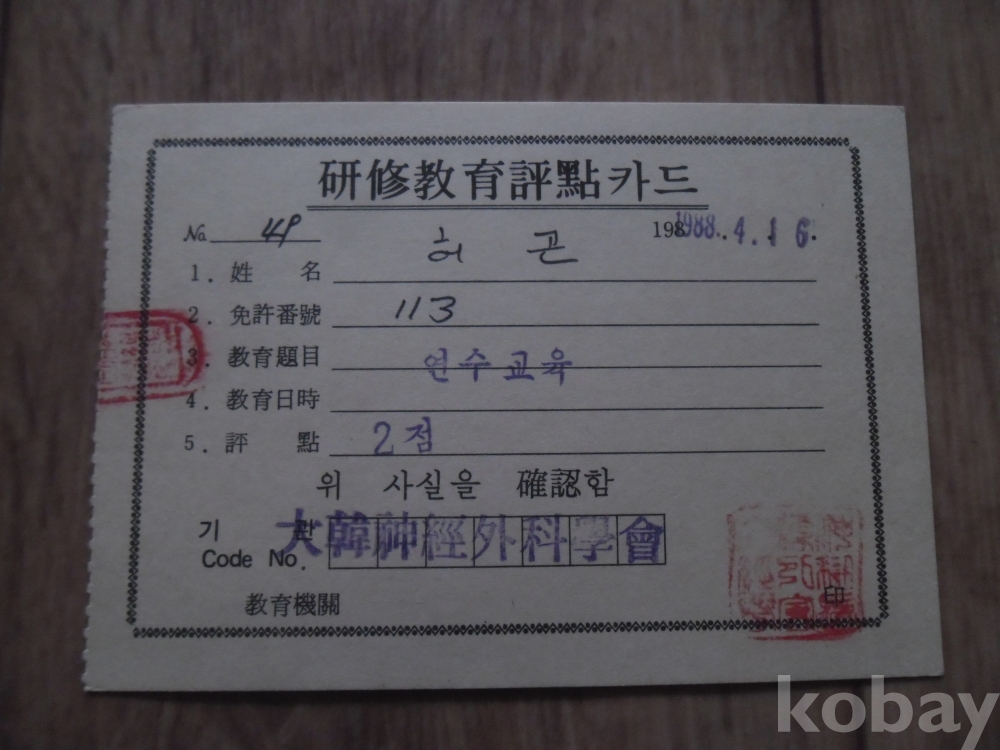 研修教育評點카드
No. 49
198 1988. 4. 1 6.
1. 姓 名 허 곤
2. 免許番號 113
3. 教育題目 연수교육
4. 教育日時
5. 評 點 2점
위 사실을 確認함
기 관 大韓神經外科學會
Code No.
教育機關
印
kobay